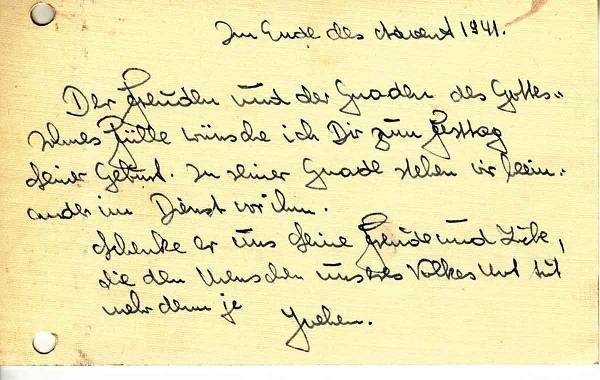 Im Ende des Advent 1941.
Der Freuden und der Gnaden des Gottes-
sohnes Fülle wünsche ich Dir zum Festtag
seiner Geburt. In seiner Gnade stehen wir beiein-
ander im Dienst vor ihm.
Schenke er uns seine Freude und Liebe,
die den Menschen unseres Volkes Not tut
mehr denn je